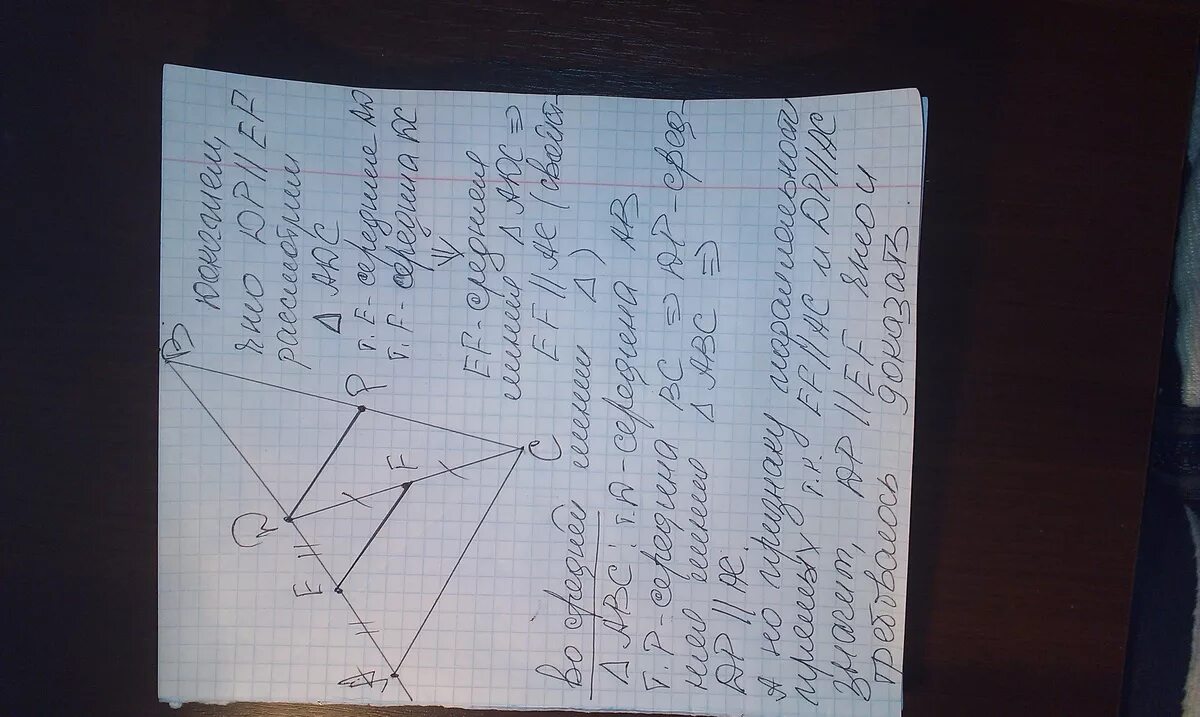 B
D
P
E
F
A
C
что DP || EF
рассмотрим
Δ ADC
т. E - середине AD
т. F - середина DC
EF - средняя
линия Δ ADC ⇒
EF || AC (свойст-
во средней линии Δ)
Δ ABC: т. D - середина AB
т. P - середина BC ⇒ DP - сред-
няя линия Δ ABC ⇒
DP || AC.
А по признаку параллельности
прямых т.к. EF || AC и DP || AC
значит, DP || EF что и
требовалось доказать